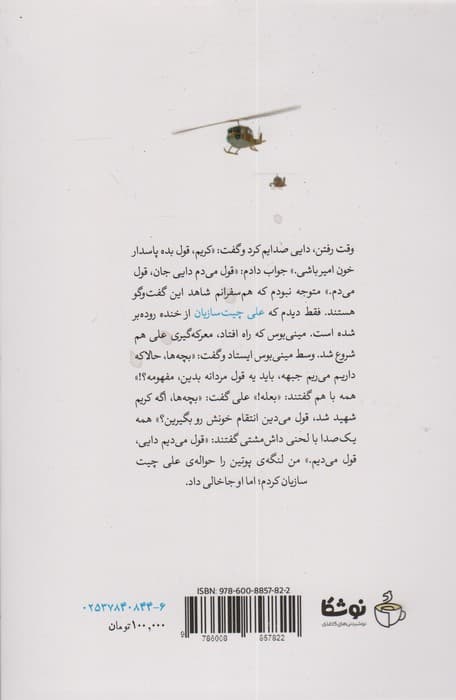 وقت رفتن، دایی صدایم کرد و گفت: «کریم، قول بده پاسدار
خون امیر باشی.» جواب دادم: «قول می‌دم دایی جان، قول
می‌دم.» متوجه نبودم که هم‌سفرانم شاهد این گفت‌وگو
هستند. فقط دیدم که علی چیت‌سازیان از خنده روده‌بر
شده است. مینی‌بوس که راه افتاد، معرکه‌گیری علی هم
شروع شد. وسط مینی‌بوس ایستاد و گفت: «بچه‌ها، حالا که
داریم می‌ریم جبهه، باید یه قول مردانه بدین، مفهومه؟!»
همه با هم گفتند: «بعله!» علی گفت: «بچه‌ها، اگه کریم
شهید شد، قول می‌دین انتقام خونش رو بگیرین؟» همه
یک‌صدا با لحنی داش‌مشتی گفتند: «قول می‌دیم دایی،
قول می‌دیم.» من لنگه‌ی پوتین را حواله‌ی علی چیت
سازیان کردم؛ اما او جاخالی داد.
ISBN: 978-600-8857-82-2
9 786008 857822
نوشگا
نوشیدنی‌های کاغذی
۰۲۵۳۷۸۴۰۸۴۴-۶
۱۰۰,۰۰۰ تومان